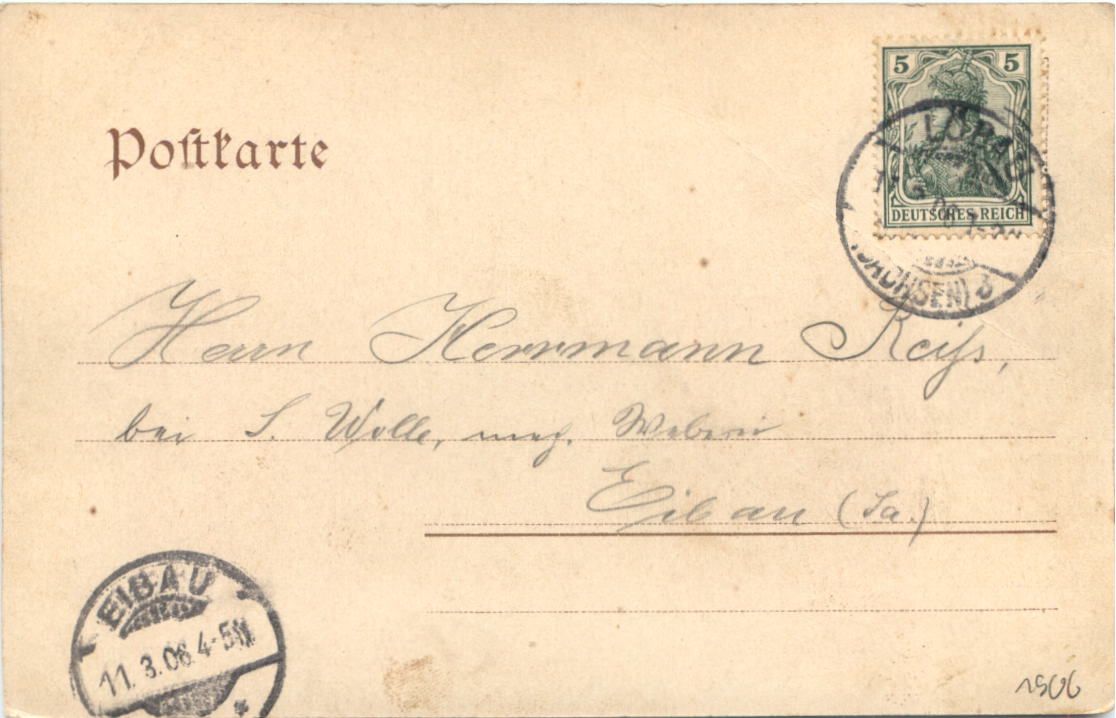 5 5
DEUTSCHES REICH
LÖBAU
(SACHSEN) 3
Postkarte
Herrn Herrmann Reiß,
bei S. Wolle, mech. Weberei
Eibau (Sa.)
EIBAU
11.3.06. 4-5N
1906